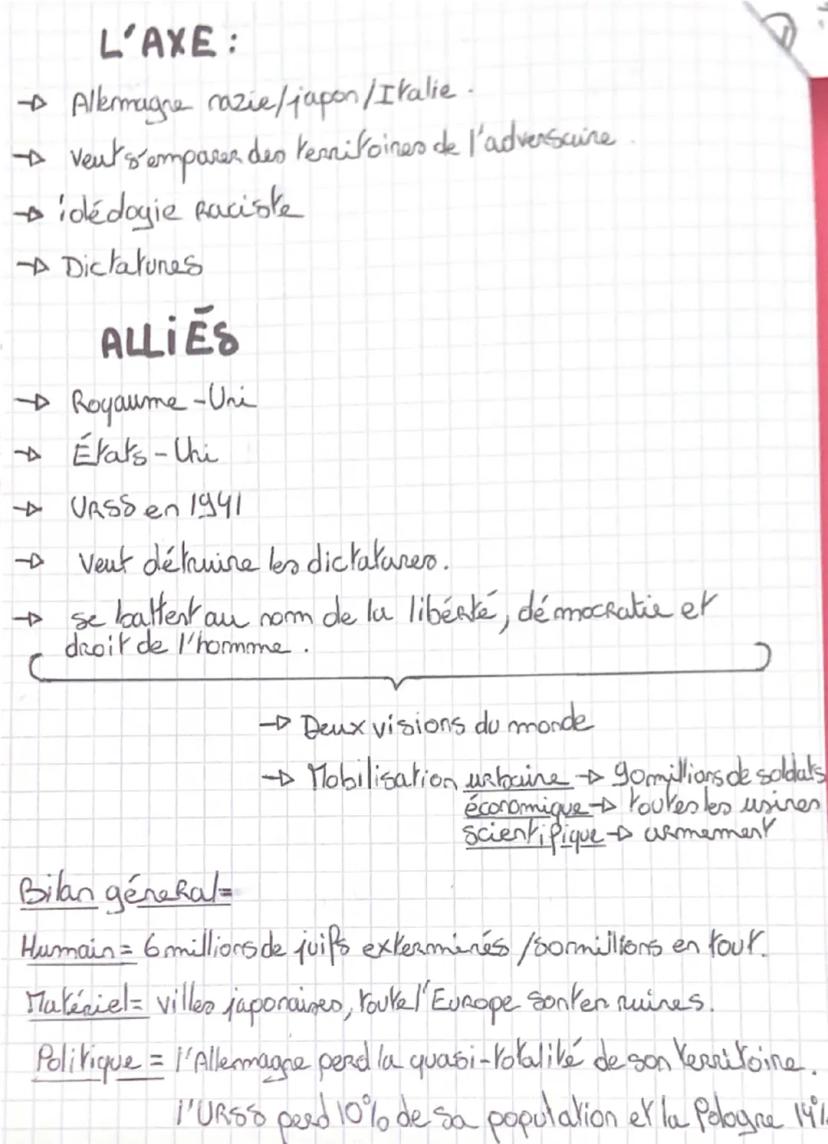 L'AXE :
→ Allemagne nazie/japon/Italie.
→ veut s'emparer des territoires de l'adversaire.
→ idédogie raciste
→ Dictatures
ALLiÉS
→ Royaume-Uni
→ États-Uni
→ URSS en 1941
→ veut détruire les dictatures.
→ se battent au nom de la libérté, démocratie et
droit de l'homme.
→ Deux visions du monde
→ Mobilisation urbaine → 90 millions de soldats
économique → toutes les usines
scientifique → armement
Bilan géneral=
Humain= 6 millions de juifs exterminés /50 millions en tout.
Matériel= villes japonaises, toute l'Europe sont en ruines.
Politique = l'Allemagne perd la quasi-totalité de son territoire.
l'URSS perd 10% de sa population et la Pologne 14%